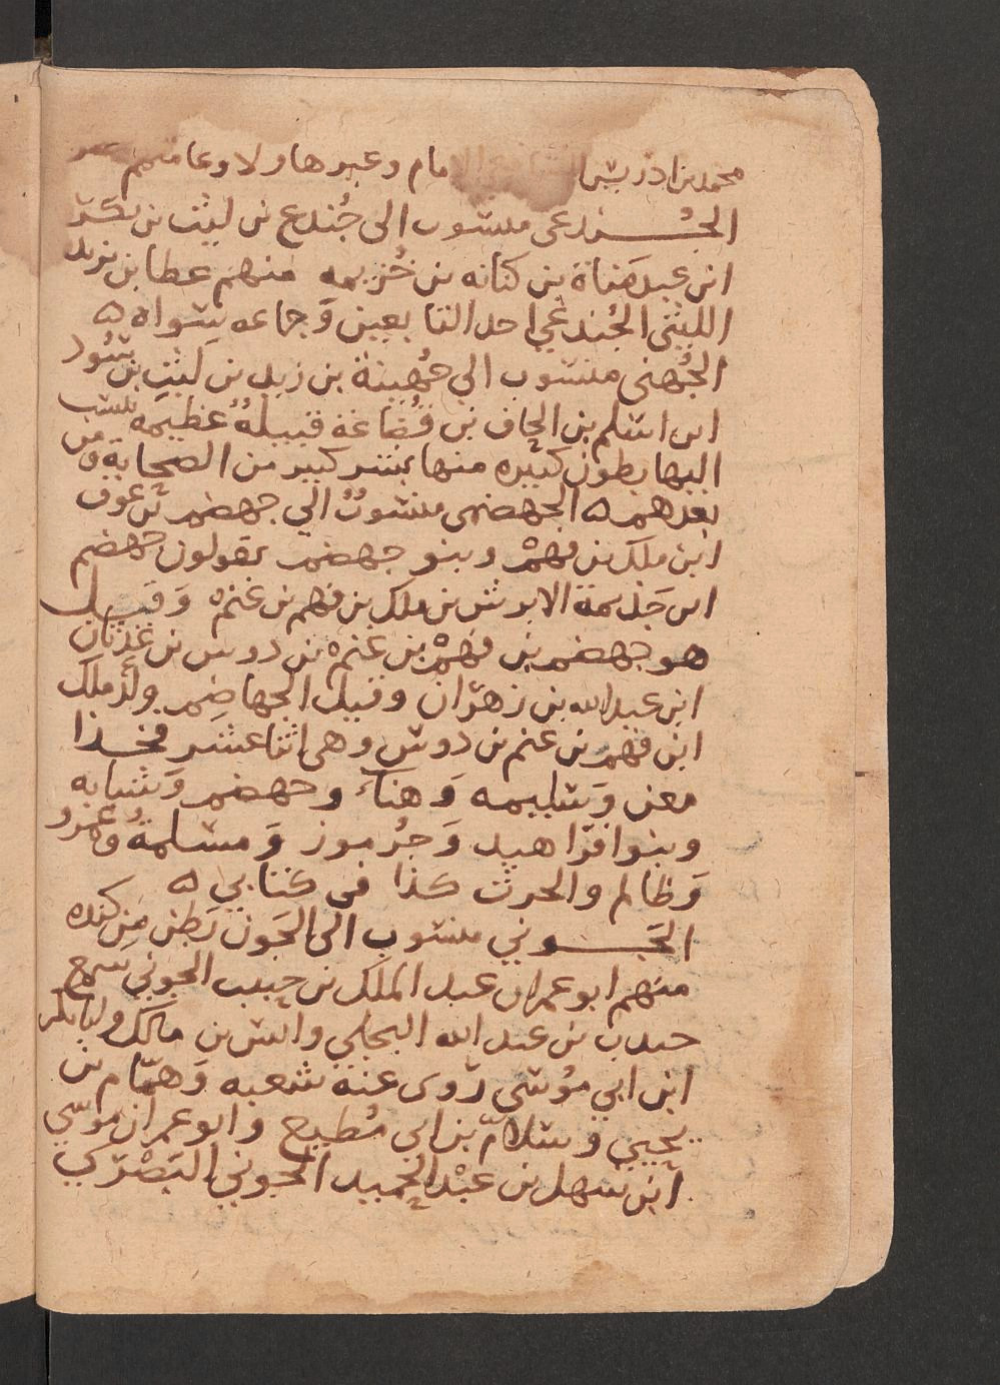 محمد بن ادريس الشافعي الامام وغيرها ولا وعامتهم
الجُندعى منسوب الى جُندع بن ليث بن بكر
ابن عبد مَناة بن كنانه بن خُزيمه منهم عطا بن يزيد
الليثى الجُندعي احد التابعين وَجماعه سواه ه
الجُهنى منسوب الي جُهينة بن زيد بن ليث بن سُود
ابن اسلم بن الحاف بن قُضاعَة قبيلةٌ عظيمه ينسب
اليها بطون كثيره منها بشر كبير من الصحابة ومن
بعدهم ه الجهضمى منسوبٌ الي جهضم بن عوف
ابن ملك بن فهمْ وبنو جهضم يقولون جهضم
ابن جَذيمة الابرش بن ملك بن فهم بن غنم وَقيل
هو جهضم بن فهمْ بن غنم بن دوس بن عُدثان
ابن عبد الله بن زهرَان وقيل الجهاضِم ولَدُ ملك
ابن فهم بن غنم بن دوس وهي اثنا عشر فخذا
معن وَسليمه وَهناء وجهضم وَشبابه
وبنوا فرَاهيد وَجُرموز وَمسلمةُ وَعَمرو
وَظالم والحرث كذا في كتابي ه
الجَوني منسوب الى الجَون بَطن مِن كنده
منهم ابو عمران عبد الملك بن حبيب الجوني سمع
جندب بن عبد الله البجلي وانس بن مالك وابا بكر
ابن ابي مُوسى رَوى عنه شعبه وَهمّام بن
يحيي وَسلامّ بن ابي مُطيع وابو عمران موسَى
ابن سهل بن عبْد الحميد الجوني البَصْرَي